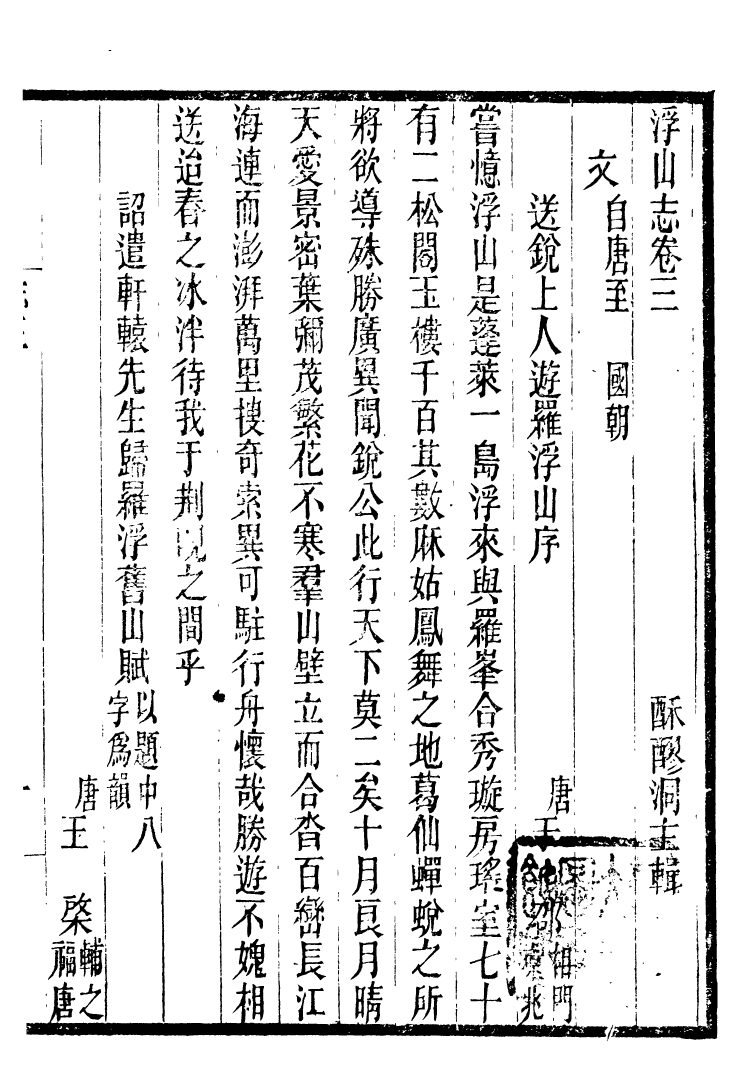 浮山志卷三　酥醪洞主輯
文自唐至　國朝
送銳上人遊羅浮山序　唐王
相門
兆
嘗憶浮山是蓬萊一島浮來與羅峯合秀璇房瑤室七十
有二松閣玉樓千百其數麻姑鳳舞之地葛仙蟬蛻之所
將欲導殊勝廣異聞銳公此行天下莫二矣十月良月晴
天愛景密葉彌茂繁花不寒羣山壁立而合沓百巒長江
海連而澎湃萬里搜奇索異可駐行舟懷哉勝遊不媿相
送迨春之冰泮待我于荆峴之間乎
詔遣軒轅先生歸羅浮舊山賦
以題中八
字爲韻
唐王　棨
輔之
福唐